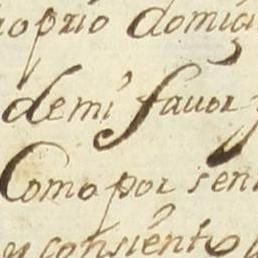 proprio domici
demi favor y
Como por sent
y consiento